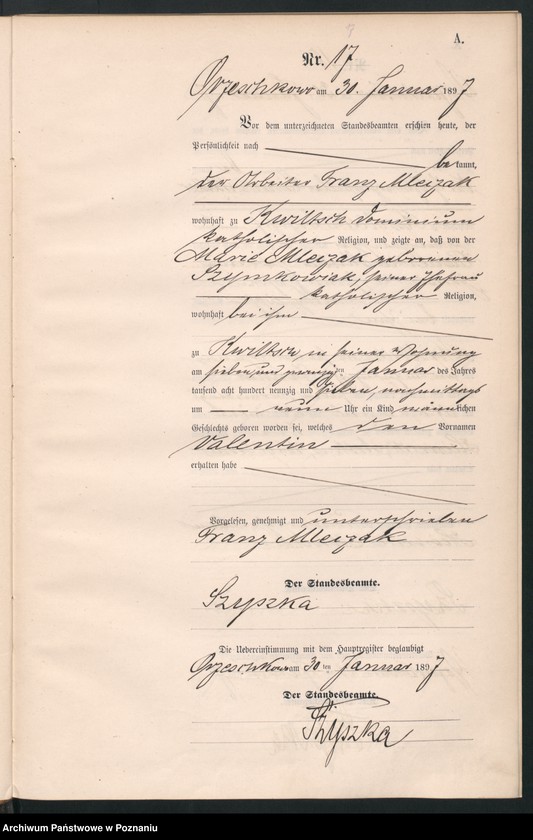 A.
Nr. 17
Orzeschkowo am 30. Januar 1897
Vor dem unterzeichneten Standesbeamten erschien heute, der
Persönlichkeit nach be kannt,
der Arbeiter Franz Mleczak
wohnhaft zu Kwiltsch Dominium
katholischer Religion, und zeigte an, daß von der
Marie Mleczak geborenen
Szymkowiak, seiner Ehefrau
katholischer Religion,
wohnhaft bei ihm
zu Kwiltsch in seiner Wohnung
am sieben und zwanzig ten Januar des Jahres
tausend acht hundert neunzig und sieben, nachmittags
um neun Uhr ein Kind männlichen
Geschlechts geboren worden sei, welches den Vornamen
Valentin
erhalten habe
Vorgelesen, genehmigt und unterschrieben
Franz Mleczak
Der Standesbeamte.
Szyszka
Die Uebereinstimmung mit dem Hauptregister beglaubigt
Orzeschkowo am 30 ten Januar 1897
Der Standesbeamte.
Szyszka
Archiwum Państwowe w Poznaniu